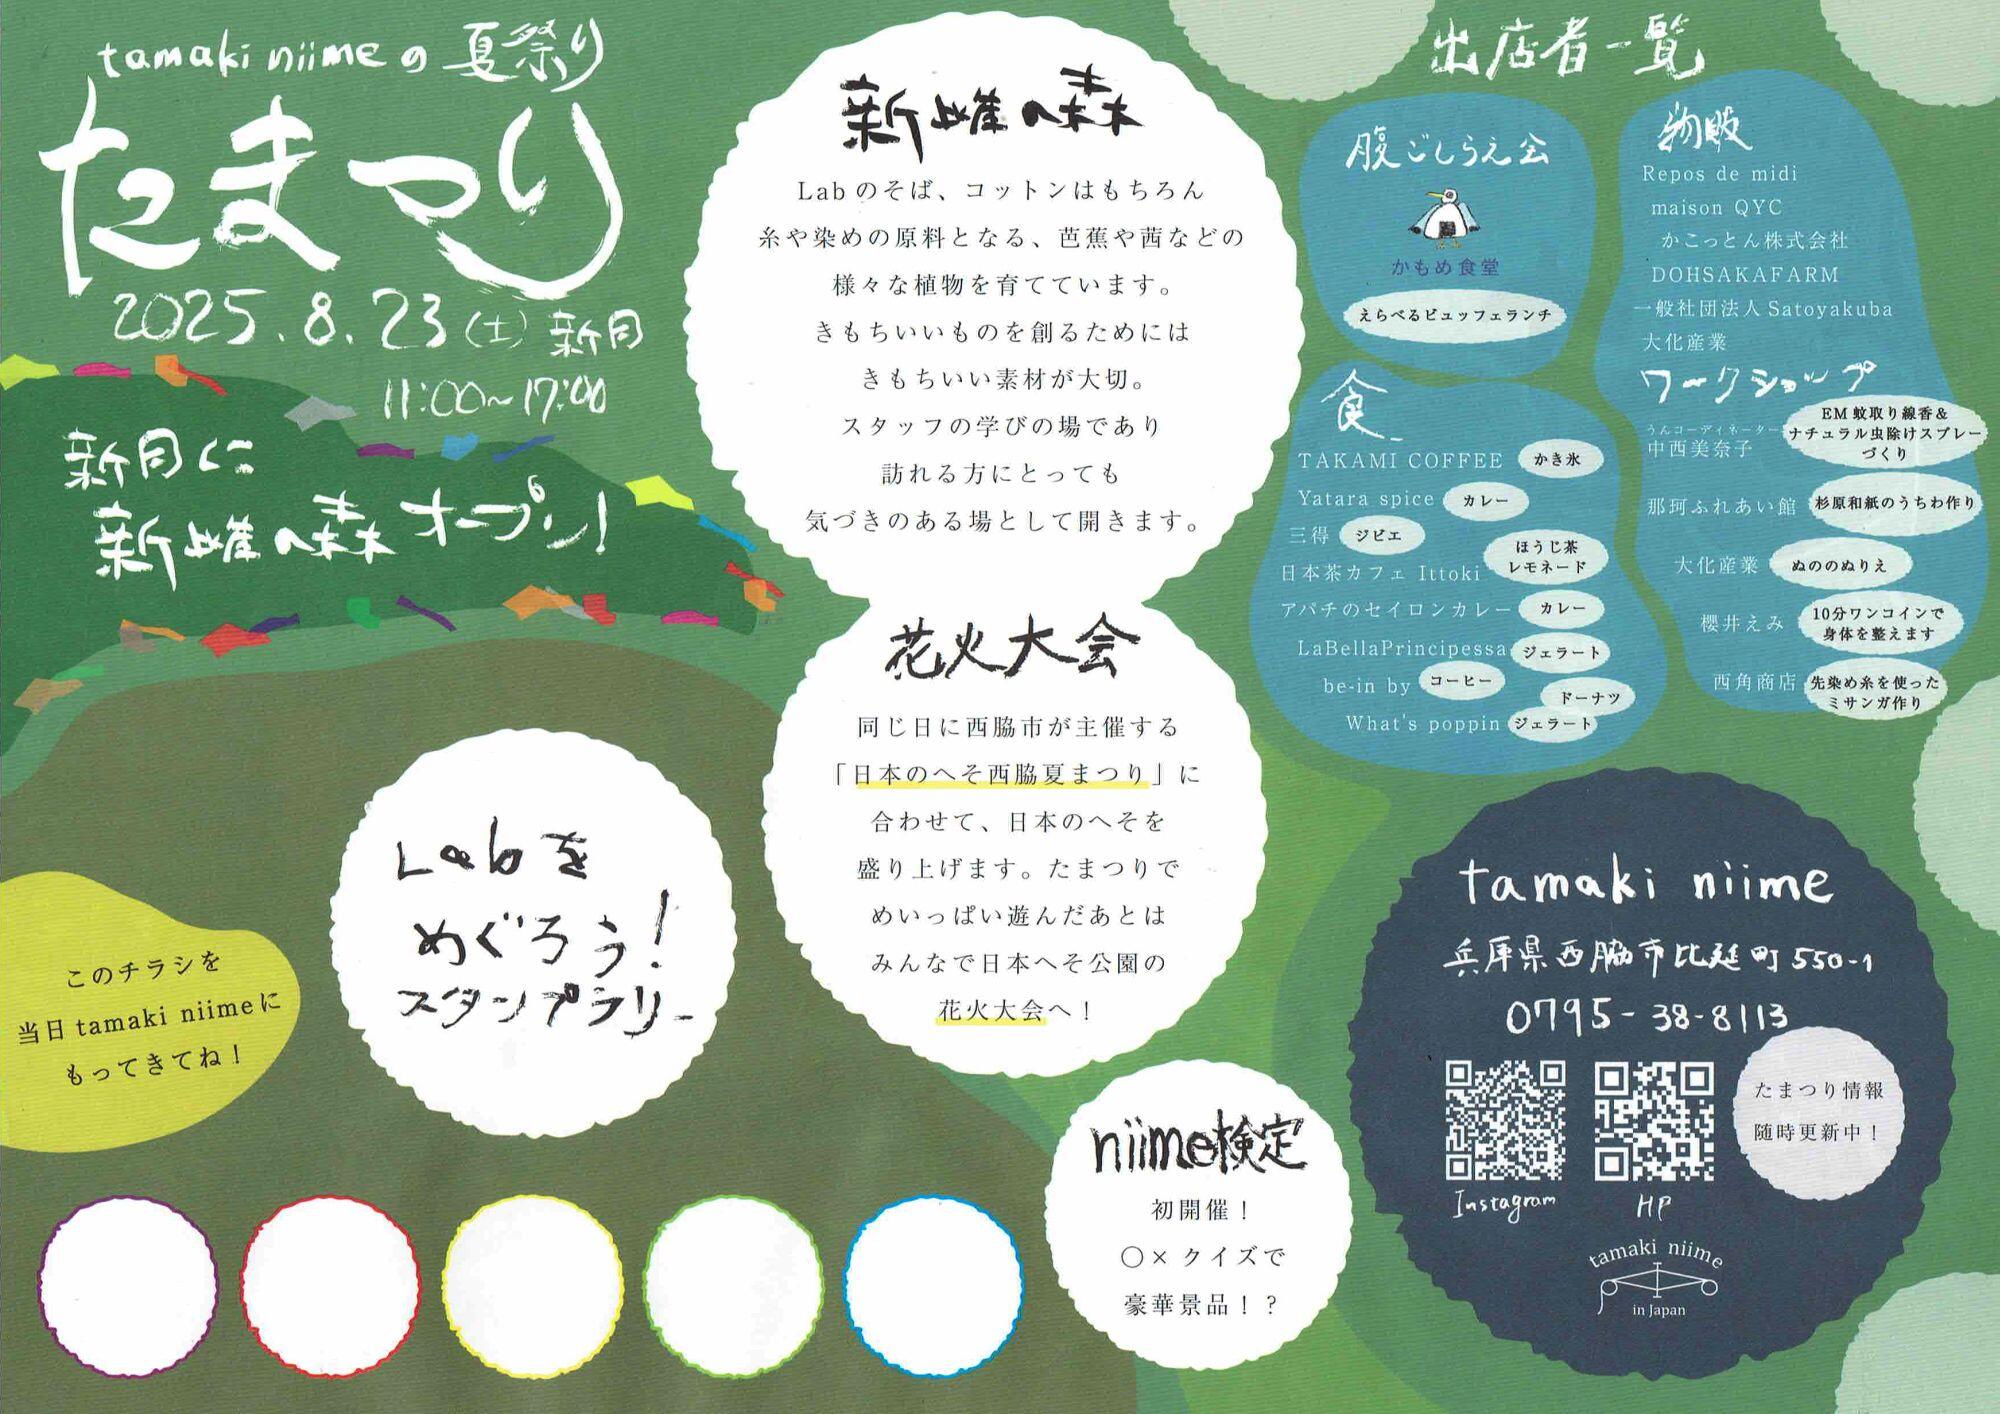 tamaki niimeの夏祭り
たまつり
2025.8.23(土)新月
11:00~17:00
新月に
新雌の森オープン!
Labを
めぐろう!
スタンプラリー
このチラシを
当日tamaki niimeに
もってきてね！
新雌の森
Labのそば、コットンはもちろん
糸や染めの原料となる、芭蕉や茜などの
様々な植物を育てています。
きもちいいものを創るためには
きもちいい素材が大切。
スタッフの学びの場であり
訪れる方にとっても
気づきのある場として開きます。
花火大会
同じ日に西脇市が主催する
「日本のへそ西脇夏まつり」に
合わせて、日本のへそを
盛り上げます。たまつりで
めいっぱい遊んだあとは
みんなで日本へそ公園の
花火大会へ！
niime検定
初開催！
〇×クイズで
豪華景品！？
出店者一覧
腹ごしらえ会
かもめ食堂
えらべるビュッフェランチ
食
TAKAMI COFFEE かき氷
Yatara spice カレー
三得 ジビエ
日本茶カフェ Ittoki ほうじ茶
レモネード
アパチのセイロンカレー カレー
LaBellaPrincipessa ジェラート
be-in by コーヒー
ドーナツ
What's poppin ジェラート
物販
Repos de midi
maison QYC
かこっとん株式会社
DOHSAKAFARM
一般社団法人Satoyakuba
大化産業
ワークショップ
うんコーディネーター
中西美奈子
EM蚊取り線香＆
ナチュラル虫除けスプレー
づくり
那珂ふれあい館 杉原和紙のうちわ作り
大化産業 ぬののぬりえ
櫻井えみ 10分ワンコインで
身体を整えます
西角商店 先染め糸を使った
ミサンガ作り
tamaki niime
兵庫県西脇市比延町550-1
0795-38-8113
たまつり情報
随時更新中！
Instagram
HP
tamaki niime
in Japan